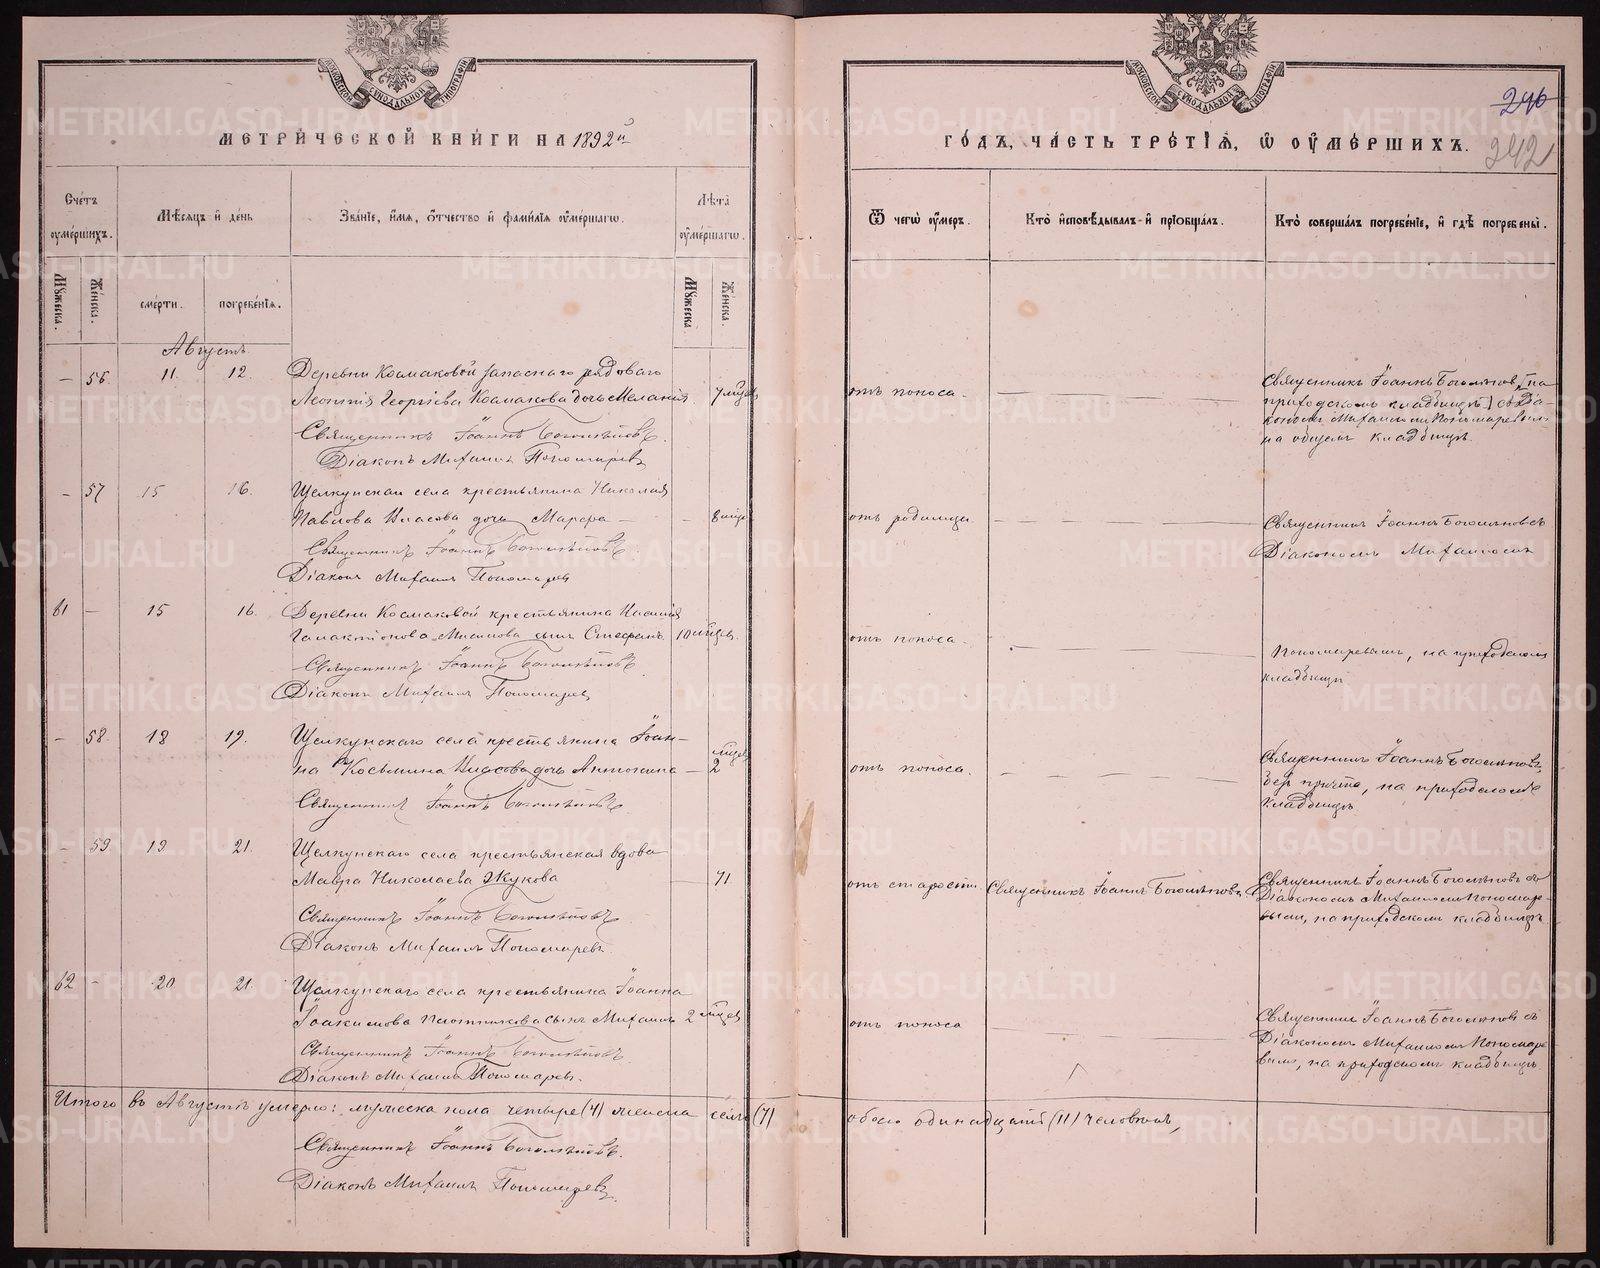 МЕТРИЧЕСКОЙ КНИГИ НА 1892й
Счетъ умершихъ.
Мѣсяцъ и день
Званіе, имя, отчество и фамилія умершаго.
Лѣта умершаго.
Мужеска.
Женска.
смерти.
погребенія.
Мужеска.
Женска.
Августъ.
— 56 11. 12. Деревни Космаковой запаснаго рядоваго
Леонтія Георгіева Космакова дочь Меланія 7 мѣсяц
Священникъ Іоаннъ Боголѣповъ.
Діаконъ Михаилъ Пономаревъ
— 57 15 16. Щелкунскаго села крестьянина Николая
Павлова Власова дочь Марфа — — 8 мѣсяц
Священникъ Іоаннъ Боголѣповъ.
Діаконъ Михаилъ Пономаревъ
61 — 15 16. Деревни Космаковой крестьянина
Галактіонова сынъ Стефанъ 10 мѣсяцев.
Священникъ Іоаннъ Боголѣповъ
Діаконъ Михаилъ Пономаревъ
— 58. 18 19. Щелкунскаго села крестьянина Іоан-
на Косьмина Власова дочь Антонина — 2 мѣсяц
Священникъ Іоаннъ Боголѣповъ
— 59 19 21. Щелкунскаго села крестьянская вдова
Мавра Николаева Жукова — 71
Священникъ Іоаннъ Боголѣповъ
Діаконъ Михаилъ Пономаревъ.
62 — 20 21. Щелкунскаго села крестьянина Іоанна
Іоакимова Плотникова сынъ Михаилъ 2 мѣсяцев
Священникъ Іоаннъ Боголѣповъ
Діаконъ Михаилъ Пономаревъ.
Итого въ Августѣ умерло: мужеска пола четыре (4) женска семь (7)
Священникъ Іоаннъ Боголѣповъ.
Діаконъ Михаилъ Пономаревъ
246
242
ГОДЪ, ЧАСТЬ ТРЕТІЯ, Ѡ УМЕРШИХЪ.
Ѿ чего умеръ.
Кто исповѣдывалъ и пріобщалъ.
Кто совершалъ погребеніе, и гдѣ погребены.
отъ поноса. Священникъ Іоаннъ Боголѣповъ, [на
приходскомъ кладбищѣ] съ Діа-
кономъ Михаиломъ Пономаревымъ
на общемъ кладбищѣ.
отъ родимца Священникъ Іоаннъ Боголѣповъ съ
Діакономъ Михаиломъ
отъ поноса. Пономаревымъ, на приходскомъ
кладбищѣ
отъ поноса. Священникъ Іоаннъ Боголѣповъ,
безъ причта, на приходскомъ
кладбищѣ
отъ старости. Священникъ Іоаннъ Боголѣповъ. Священникъ Іоаннъ Боголѣповъ съ
Діакономъ Михаиломъ Пономаре-
вымъ, на приходскомъ кладбищѣ
отъ поноса Священникъ Іоаннъ Боголѣповъ съ
Діакономъ Михаиломъ Пономаре-
вымъ, на приходскомъ кладбищѣ
обоего одинадцать (11) человѣкъ,
METRIKI.GASO-URAL.RU